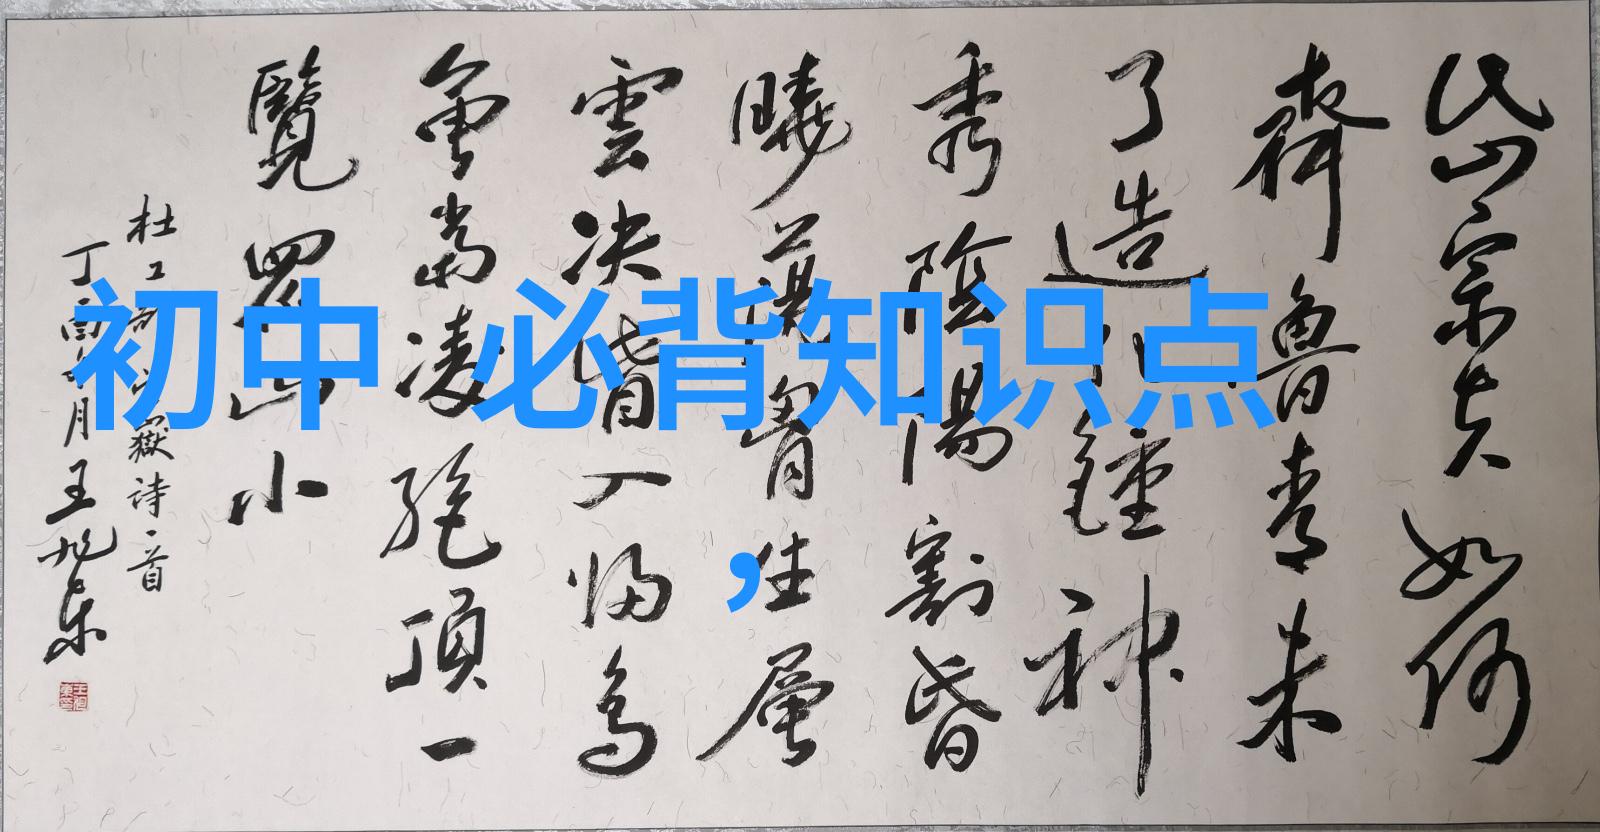 初中 必背知识点
，
岱宗夫如何
齊魯青未
了造化鍾神
秀陰陽割昏
曉蕩胷生層
雲决眥入歸鳥
會當凌絕頂一
覽眾山小
杜工部望嶽詩一首
丁酉月王旭东